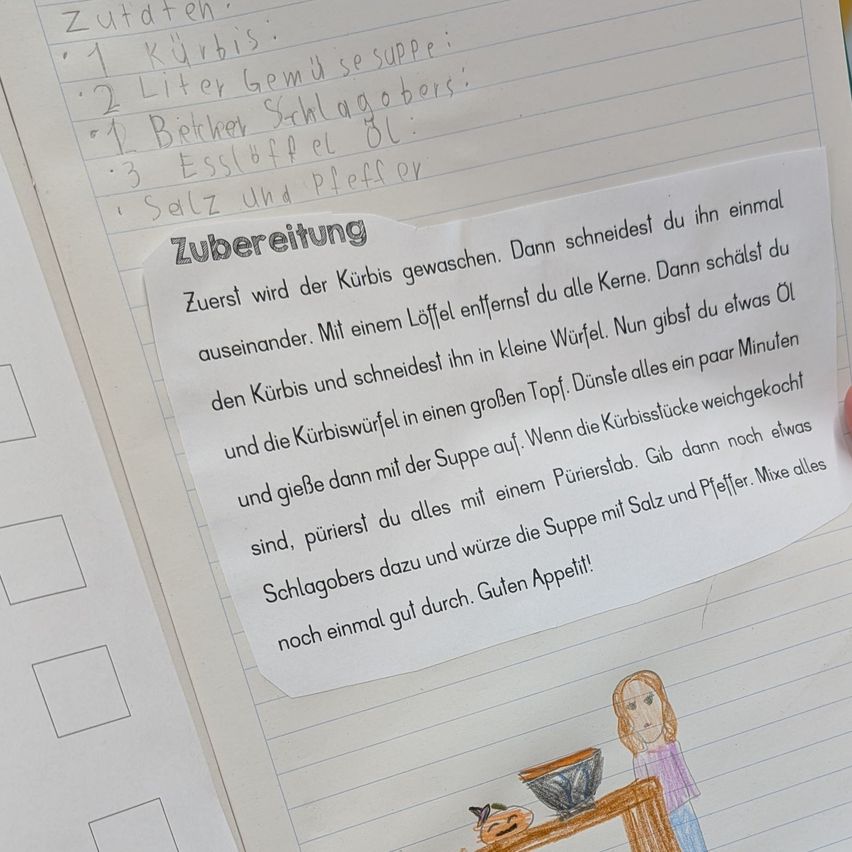 Zutaten:
· 1 Kürbis:
· 2 Liter Gemüsesuppe:
· 1 Becher Schlagobers:
· 3 Esslöffel Öl:
· Salz und Pfeffer
Zubereitung
Zuerst wird der Kürbis gewaschen. Dann schneidest du ihn einmal
auseinander. Mit einem Löffel entfernst du alle Kerne. Dann schälst du
den Kürbis und schneidest ihn in kleine Würfel. Nun gibst du etwas Öl
und die Kürbiswürfel in einen großen Topf. Dünste alles ein paar Minuten
und gieße dann mit der Suppe auf. Wenn die Kürbisstücke weichgekocht
sind, pürierst du alles mit einem Pürierstab. Gib dann noch etwas
Schlagobers dazu und würze die Suppe mit Salz und Pfeffer. Mixe alles
noch einmal gut durch. Guten Appetit!